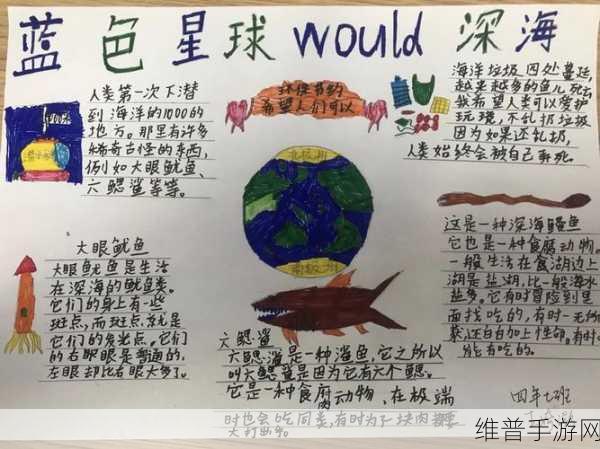 蓝色星球would深海
人类第一次下潜
到海洋的1000的
地方。那里有许多
稀奇古怪的东西,
例如大眼鱿鱼、
六鳃鲨等等。
环保节约
希望人们可以
海洋垃圾四处蔓延,
越来越多的鱼儿死去
我希望人类可以爱护
环境,不乱扔垃圾
因为如果还乱扔,
人类始终会被自己弄死。
北极洲
南极洲
大眼鱿鱼
大眼鱿鱼是生活
在深海的鱿鱼类。
它们的身上有一些
斑点,而斑点就是
它们的发光点。它们
的右眼眼是普通的,
左眼却比右眼大多了。
六鳃鲨
六鳃鲨是一种鲨鱼,它之所以
叫六鳃鲨是因为它有六个鳃。
它是一种食腐肉动物、在极端
时也会吃同类,有时为了一块肉都要
大打出手。
这是一种深海鳗鱼
它也是一种食腐动物。
一般生活在盐湖边上
湖是盐湖,比一般海水
盐多。它有时冒险到里
面找吃的,有时一无所
获,还白白加上性命。有时
能有吃的。
四年七班
维普手游网